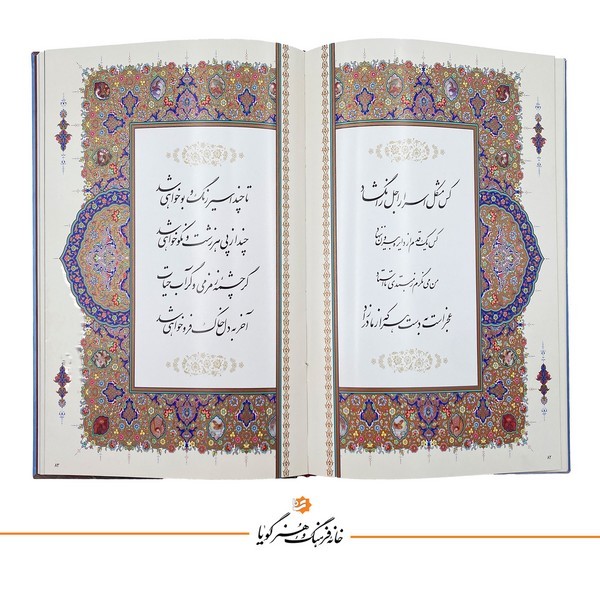 کس مشکل اسرار اجل را نگشاد
کس یک قدم از دایره بیرون ننهاد
من می‌نگرم ز مبتدی تا استاد
عجز است به دست هر که از مادر زاد
۸۲
تا چند اسیر رنگ و بو خواهی شد
چند از پی هر زشت و نکو خواهی شد
گر چشمه زمزمی و گر آب حیات
آخر به دل خاک فرو خواهی شد
خانه فرهنگ و هنر گویا